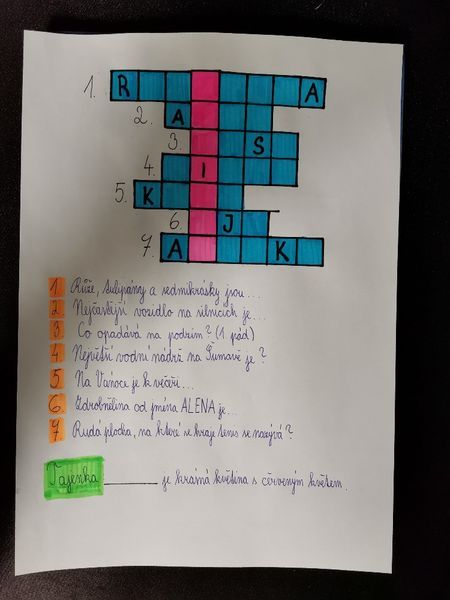 1. R A
2. A
3. S
4. I
5. K
6. J
7. A K
1 Růže, tulipány a sedmikrásky jsou...
2 Nejčastější vozidlo na silnicích je...
3 Co opadává na podzim? (1. pád)
4 Největší vodní nádrž na Šumavě je?
5 Na Vánoce je k večeři...
6. Zdrobnělina od jména ALENA je...
7 Rudá plocha, na které se hraje tenis se nazývá?
Tajenka ________ je krásná květina s červeným květem.